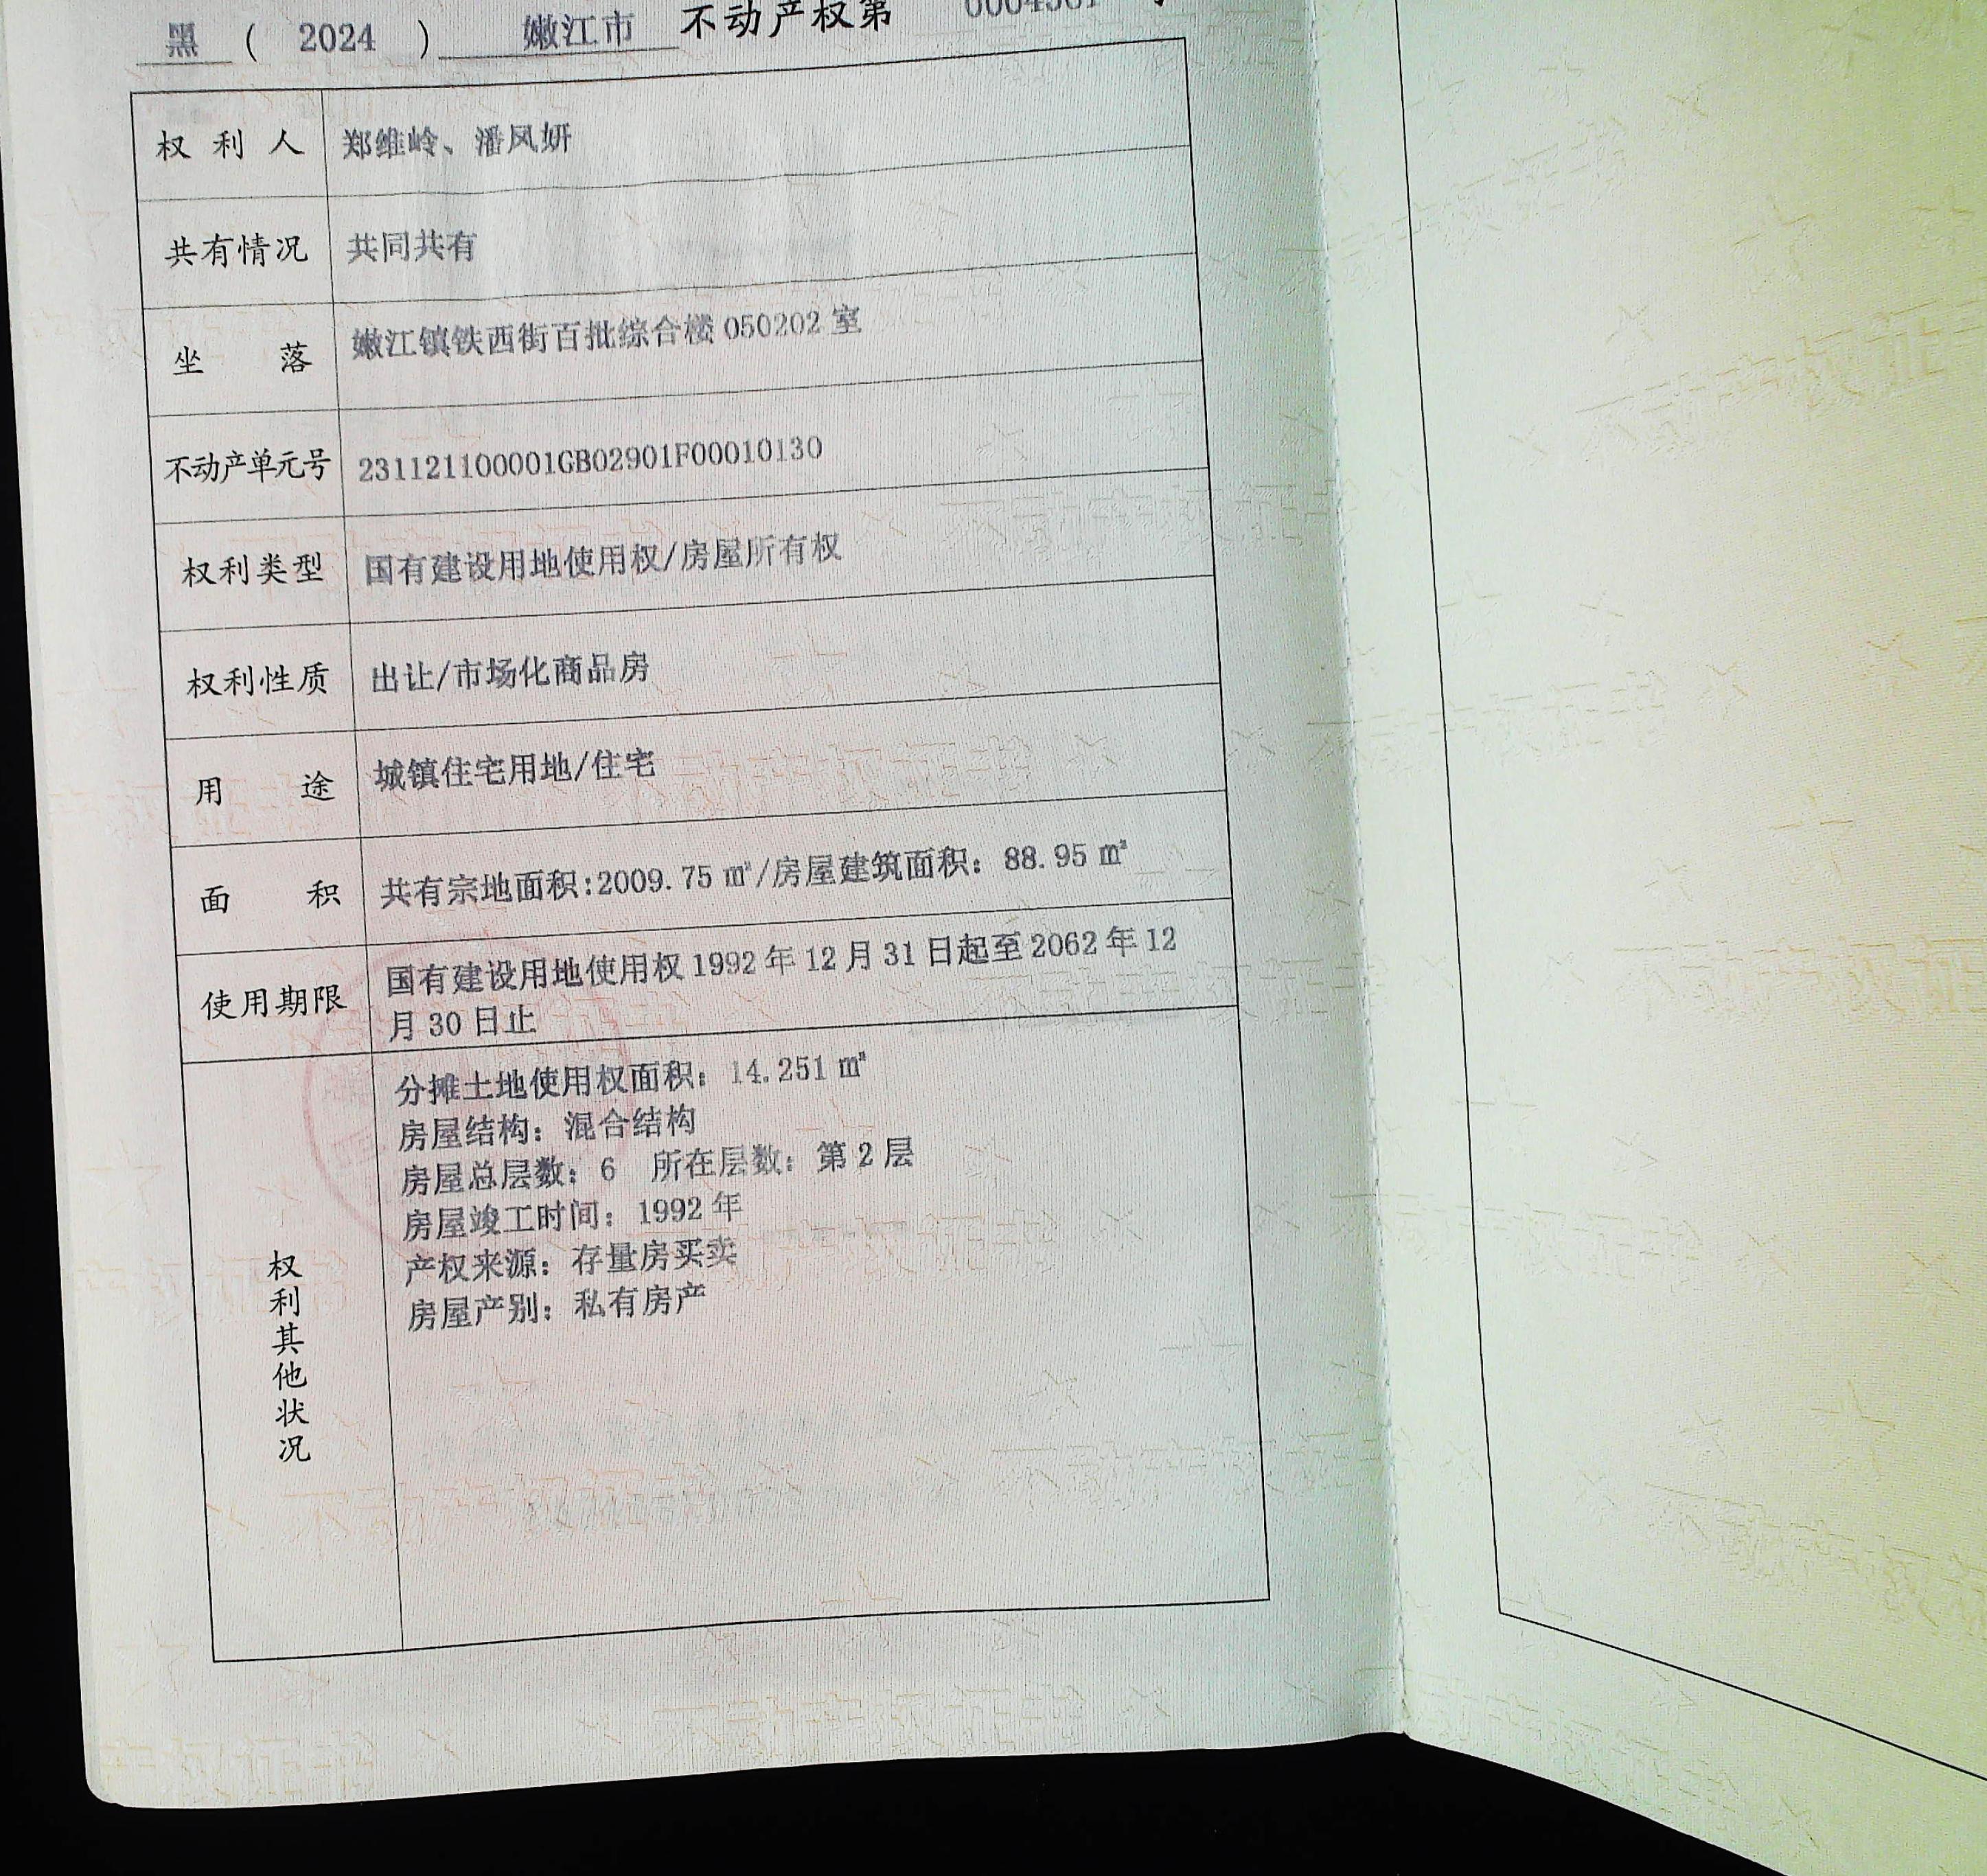 黑 ( 2024 ) 嫩江市 不动产权第
权利人 郑维岭、潘凤妍
共有情况 共同共有
坐落 嫩江镇铁西街百批综合楼 050202 室
不动产单元号 231121100001GB02901F00010130
权利类型 国有建设用地使用权/房屋所有权
权利性质 出让/市场化商品房
用途 城镇住宅用地/住宅
面积 共有宗地面积:2009.75 ㎡/房屋建筑面积: 88.95 ㎡
使用期限 国有建设用地使用权 1992 年 12 月 31 日起至 2062 年 12
月 30 日止
权利其他状况
分摊土地使用权面积: 14.251 ㎡
房屋结构: 混合结构
房屋总层数: 6 所在层数: 第 2 层
房屋竣工时间: 1992 年
产权来源: 存量房买卖
房屋产别: 私有房产